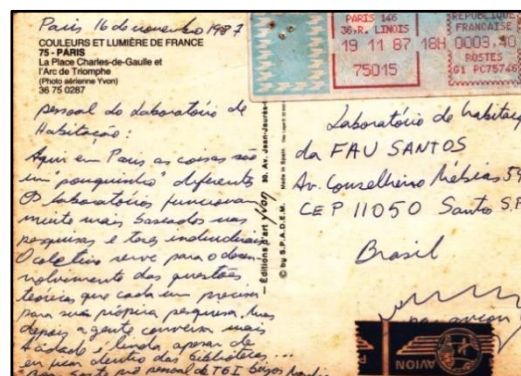 Paris 16 de novembro 1987
COULEURS ET LUMIÈRE DE FRANCE
75 - PARIS
La Place Charles-de-Gaulle et
l'Arc de Triomphe
(Photo aérienne Yvon)
36 75 0287
pessoal do Laboratório de
Habitação:
Aqui em Paris as coisas são
um "pouquinho" diferentes
Os laboratórios funcionam
muito mais baseados nas
pesquisas e teses individuais
O coletivo serve para o desen-
volvimento das questões
teóricas que cada um precisa
para sua própria pesquisa, mas
depois a gente conversa mais
A cidade é linda, apesar de
eu ficar dentro das bibliotecas...
pessoal de TGI beijos
Editions d'art Yvon 30, Av. Jean-Jaurès
© by S.P.A.D.E.M. Made in Spain
PARIS 146
36,R. LINOIS
19 11 87 18H
75015
REPUBLIQUE
FRANCAISE
0003,40
POSTES
G1 PC75746
Laboratório de habitaç
da FAU SANTOS
Av. Conselheiro Nébias 59
CEP 11050 Santos S.P
Brasil
par avion
AVION